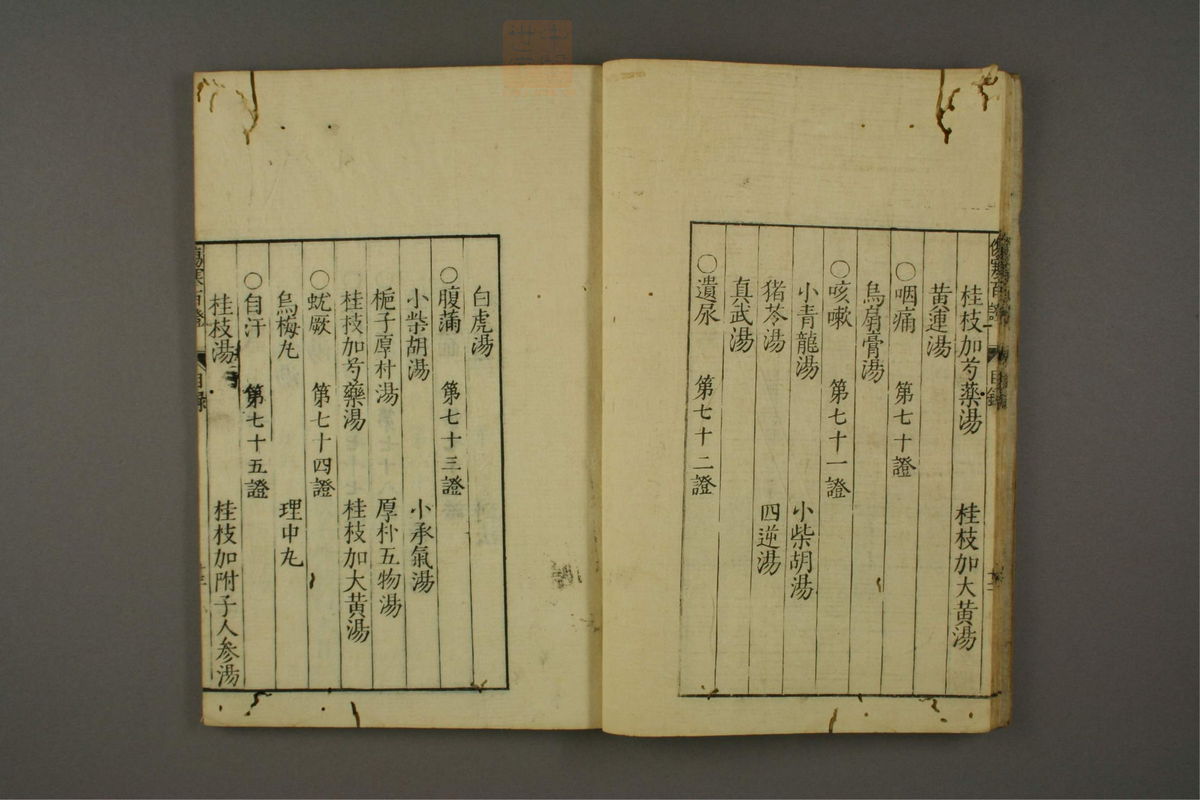 傷寒百證
目錄
桂枝加芍藥湯　桂枝加大黃湯
黃連湯
○咽痛　第七十證
烏扇膏湯
○咳嗽　第七十一證
小青龍湯　小柴胡湯
猪苓湯　四逆湯
真武湯
○遺尿　第七十二證
白虎湯
○腹滿　第七十三證
小柴胡湯　小承氣湯
梔子厚朴湯　厚朴五物湯
桂枝加芍藥湯　桂枝加大黃湯
○蚘厥　第七十四證
烏梅丸　理中丸
○自汗　第七十五證
桂枝湯　桂枝加附子人參湯
傷寒百證
目錄